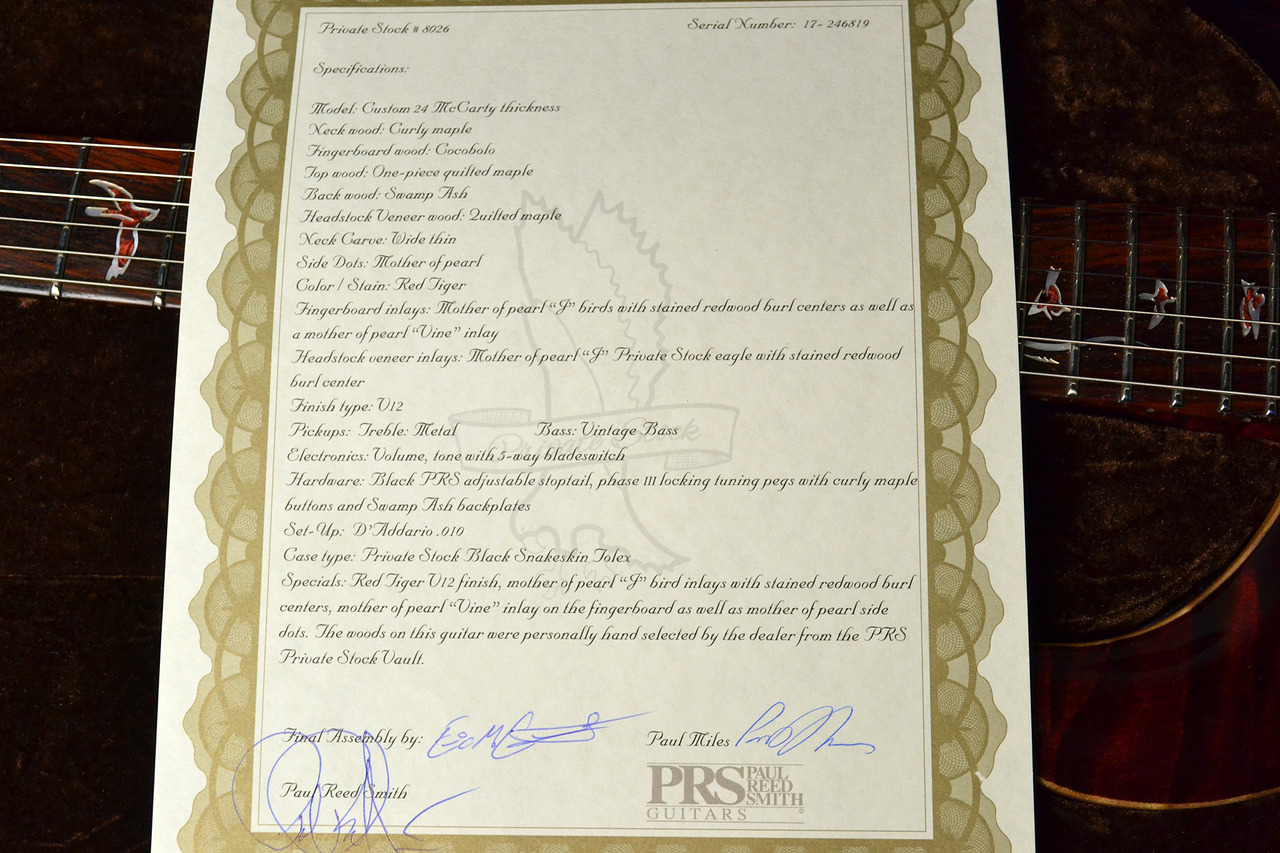 Private Stock # 8026
Serial Number: 17- 246819
Specifications:
Model: Custom 24 McCarty thickness
Neck wood: Curly maple
Fingerboard wood: Cocobolo
Top wood: One-piece quilted maple
Back wood: Swamp Ash
Headstock Veneer wood: Quilted maple
Neck Carve: Wide thin
Side Dots: Mother of pearl
Color / Stain: Red Tiger
Fingerboard inlays: Mother of pearl “J” birds with stained redwood burl centers as well as
a mother of pearl “Vine” inlay
Headstock veneer inlays: Mother of pearl “J” Private Stock eagle with stained redwood
burl center
Finish type: V12
Pickups: Treble: Metal Bass: Vintage Bass
Electronics: Volume, tone with 5-way bladeswitch
Hardware: Black PRS adjustable stoptail, phase III locking tuning pegs with curly maple
buttons and Swamp Ash backplates
Set-Up: D'Addario .010
Case type: Private Stock Black Snakeskin Tolex
Specials: Red Tiger V12 finish, mother of pearl “J” bird inlays with stained redwood burl
centers, mother of pearl “Vine” inlay on the fingerboard as well as mother of pearl side
dots. The woods on this guitar were personally hand selected by the dealer from the PRS
Private Stock Vault.
Private Stock
Final Assembly by:
Paul Miles
Paul Reed Smith
PRS PAUL REED SMITH
GUITARS